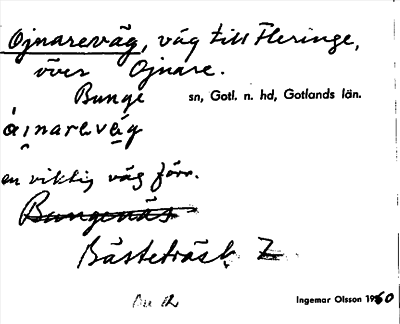 Ojnareväg, väg till Fleringe,
över Ojnare.
Bunge sn, Gotl. n. hd, Gotlands län.
en viktig väg förr.
Bungenäs
Bästeträsk
Ingemar Olsson 1960